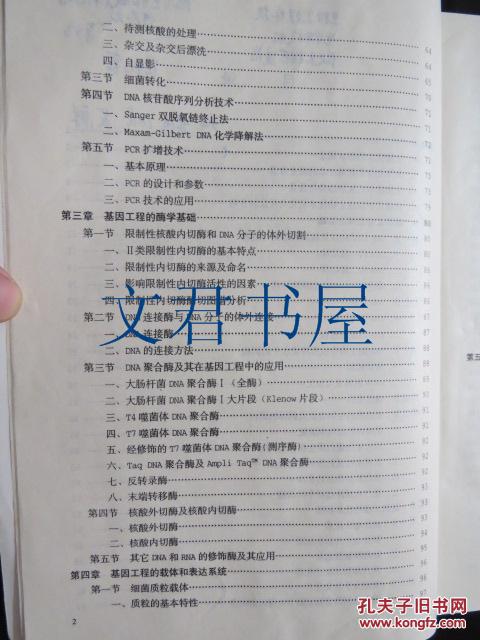 二、待测核酸的处理 64
三、杂交及杂交后漂洗 64
四、自显影 65
第三节 细菌转化 70
第四节 DNA核苷酸序列分析技术 71
一、Sanger双脱氧链终止法 71
二、Maxam-Gilbert DNA化学降解法 72
第五节 PCR扩增技术 75
一、基本原理
二、PCR的设计和参数
三、PCR技术的应用 79
第三章 基因工程的酶学基础 80
第一节 限制性核酸内切酶和DNA分子的体外切割
一、Ⅱ类限制性内切酶的基本特点
二、限制性内切酶的来源及命名
三、影响限制性内切酶活性的因素
四、限制性内切酶酶切图谱分析
第二节 DNA连接酶与DNA分子的体外连接 87
一、DNA连接酶 87
二、DNA的连接方法
第三节 DNA聚合酶及其在基因工程中的应用
一、大肠杆菌DNA聚合酶Ⅰ(全酶)
二、大肠杆菌DNA聚合酶Ⅰ大片段(Klenow片段)
三、T4噬菌体DNA聚合酶 91
四、T7噬菌体DNA聚合酶
五、经修饰的T7噬菌体DNA聚合酶(测序酶) 92
六、Taq DNA聚合酶及Ampli Taq™ DNA聚合酶 92
七、反转录酶 92
八、末端转移酶
第四节 核酸外切酶及核酸内切酶 93
一、核酸外切酶 93
二、核酸内切酶
第五节 其它DNA和RNA的修饰酶及其应用 95
第四章 基因工程的载体和表达系统 96
第一节 细菌质粒载体 96
一、质粒的基本特性 97
2
文君书屋
孔夫子旧书网